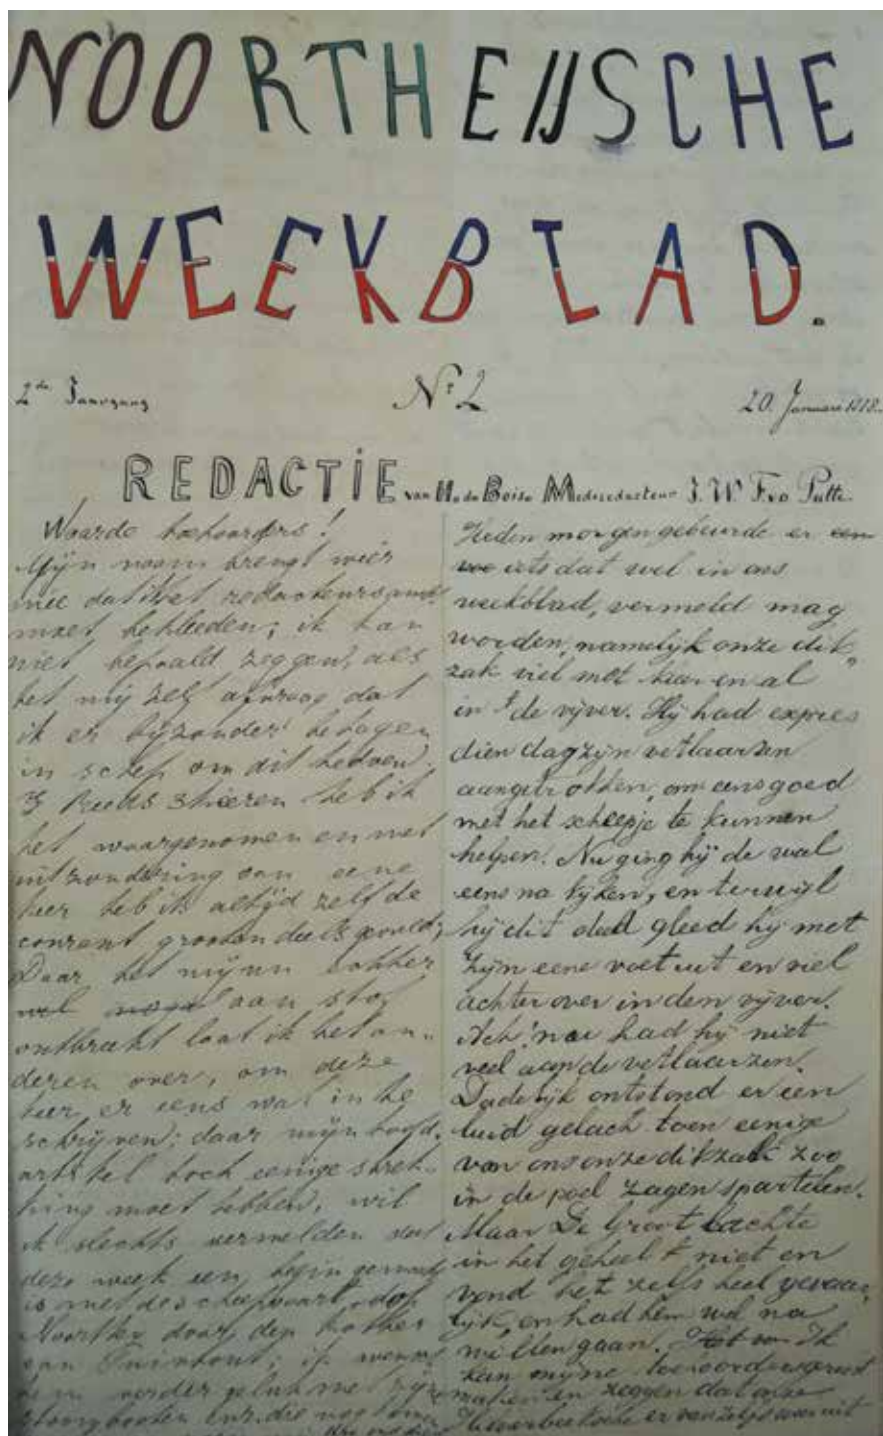 NOORTHEIJSCHE
WEEKBLAD.
2de Jaargang
No 2
20 Januari
REDACTIE van H. du Bois. Mederedacteur J. W. F.
Waarde toehoorders!
Mijn naam brengt weer
mee dat ik het redacteurs
moet bekleeden; ik kan
niet bepaald zeggen, als
het mij zelf afvraag dat
ik er bijzonder behagen
in schep om dit te doen.
Reeds 3 keeren heb ik
het waargenomen en met
uitzondering van eene
keer heb ik altijd zelf de
courant grootendeels gevuld;
Daar het mijnn echter
wel nogal aan stof
ontbreekt laat ik het an-
deren over, om deze
keer er eens wat in te
schrijven; daar mijn hoofd-
artikel toch eenige strek-
king moet hebben, wil
ik slechts vermelden dat
deze week een begin gemaakt
is met de scheepvaart op
Noorthey door den
van Tuinhout; ik wensch
hem verder geluk met zijne
stoombooten enz. die nog
Heden morgen gebeurde er een
we iets dat wel in ons
weekblad, vermeld mag
worden, namelijk onze dik
zak viel met huar en al
in t de vijver. Hij had expres
dien dag zijn vetlaarzen
aangetrokken, om eens goed
met het scheepje te kunnen
helpen. Nu ging hij de wal
eens na kijken, en terwijl
hij dit deed gleed hij met
zijn eene voet uit en viel
achter over in den vijver.
Ach! nou had hij niet
veel aan de vetlaarzen.
Dadelijk ontstond er een
luid gelach toen eenige
van ons onze dikzak zoo
in de poel zagen spartelen.
Maar De Groot lachte
in het geheel t niet en
vond het zelfs heel gevaar-
lijk, en had hem wel na
willen gaan. Het was Ik
kan mijne toehoorders gerust
maken en zeggen dat onze
er van zelfs weer uit